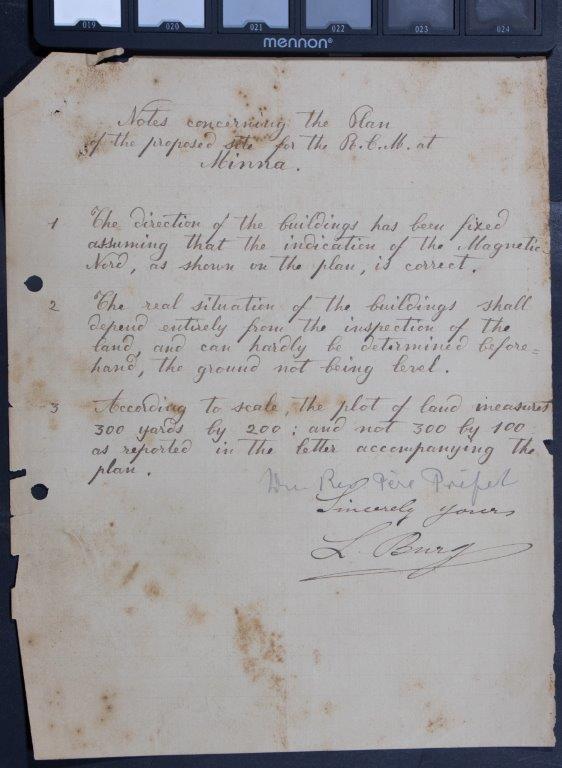 019 020 021 022 023 024
mennon®
Notes concerning the Plan
of the proposed site for the R.C.M. at
Minna.
1 The direction of the buildings has been fixed
assuming that the indication of the Magnetic
Nord, as shown on the plan, is correct.
2 The real situation of the buildings shall
depend entirely from the inspection of the
land, and can hardly be determined before=
hand, the ground not being level.
3 According to scale, the plot of land measures
300 yards by 200 : and not 300 by 100
as reported in the letter accompanying the
plan.
Rev Père Préfet
Sincerely yours
L. Burg